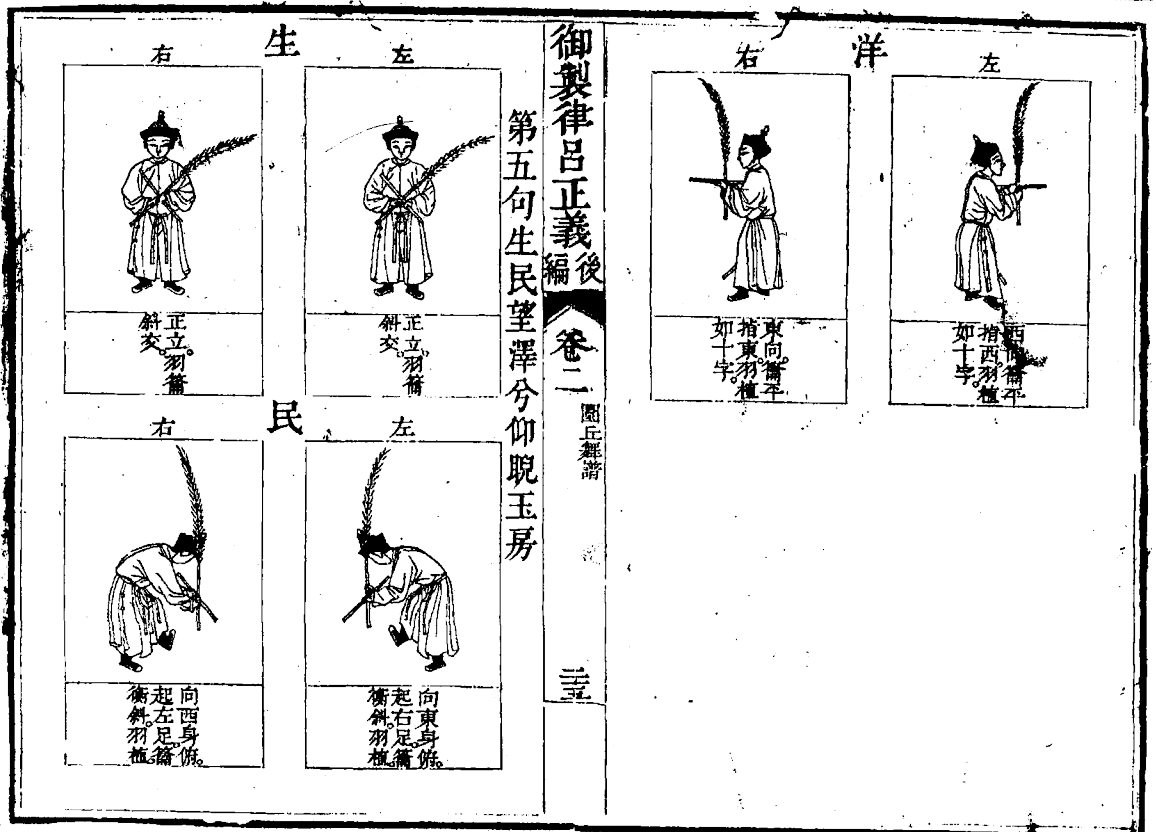 洋
左
西向。籥平
指西。羽植
如十字。
右
東向。籥平
指東。羽植
如十字。
御製律呂正義後編
卷二
圜丘舞譜
第五句生民望澤兮仰睨玉房
生
左
正立。羽籥
斜交。
右
正立。羽籥
斜交。
民
左
向東身俯。
起右足。籥
衡斜。羽植。
右
向西身俯。
起左足。籥
衡斜。羽植。